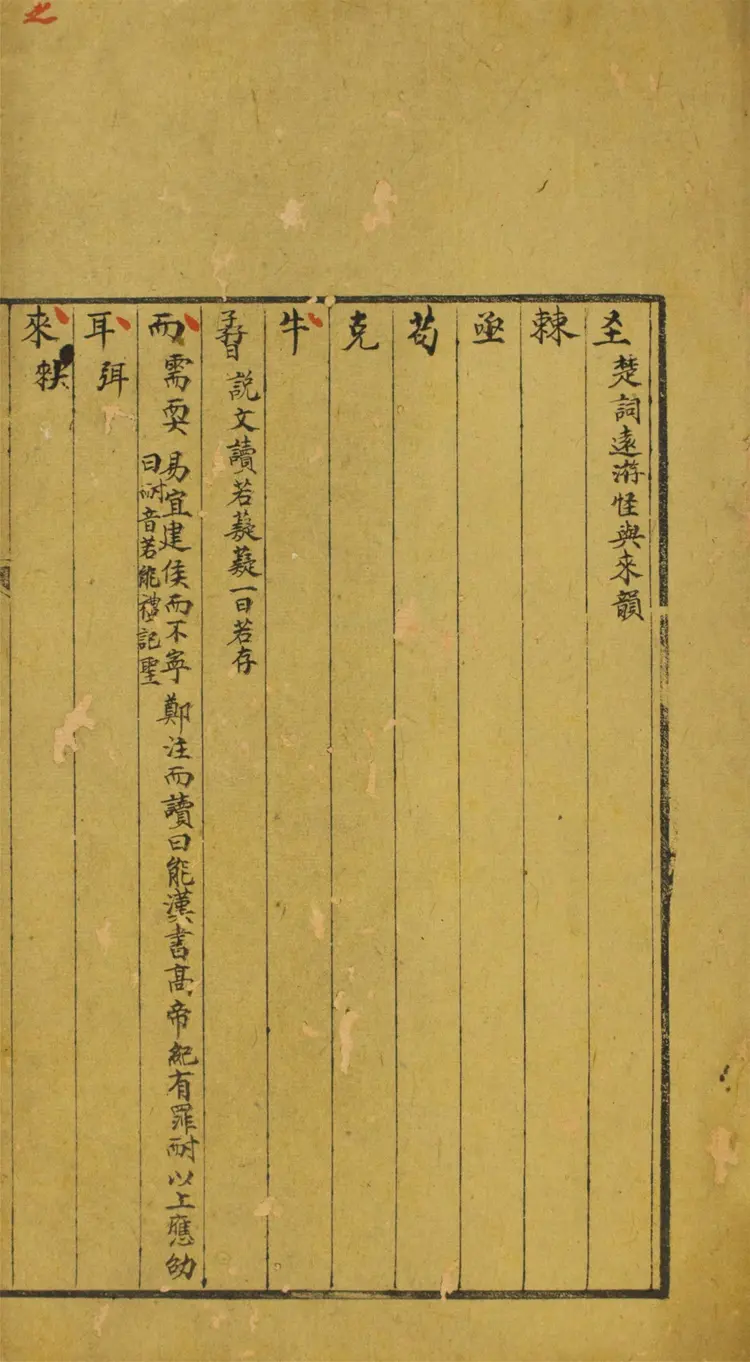 之
圣 楚詞遠游怪與來韻
棘
亟
茍
克
牛
孴 說文讀若薿薿一曰若存
而需耎 易宜建侯而不寧 鄭注而讀曰能漢書高帝紀有罪耐以上應劭
曰耐音若能禮記聖
耳弭
來